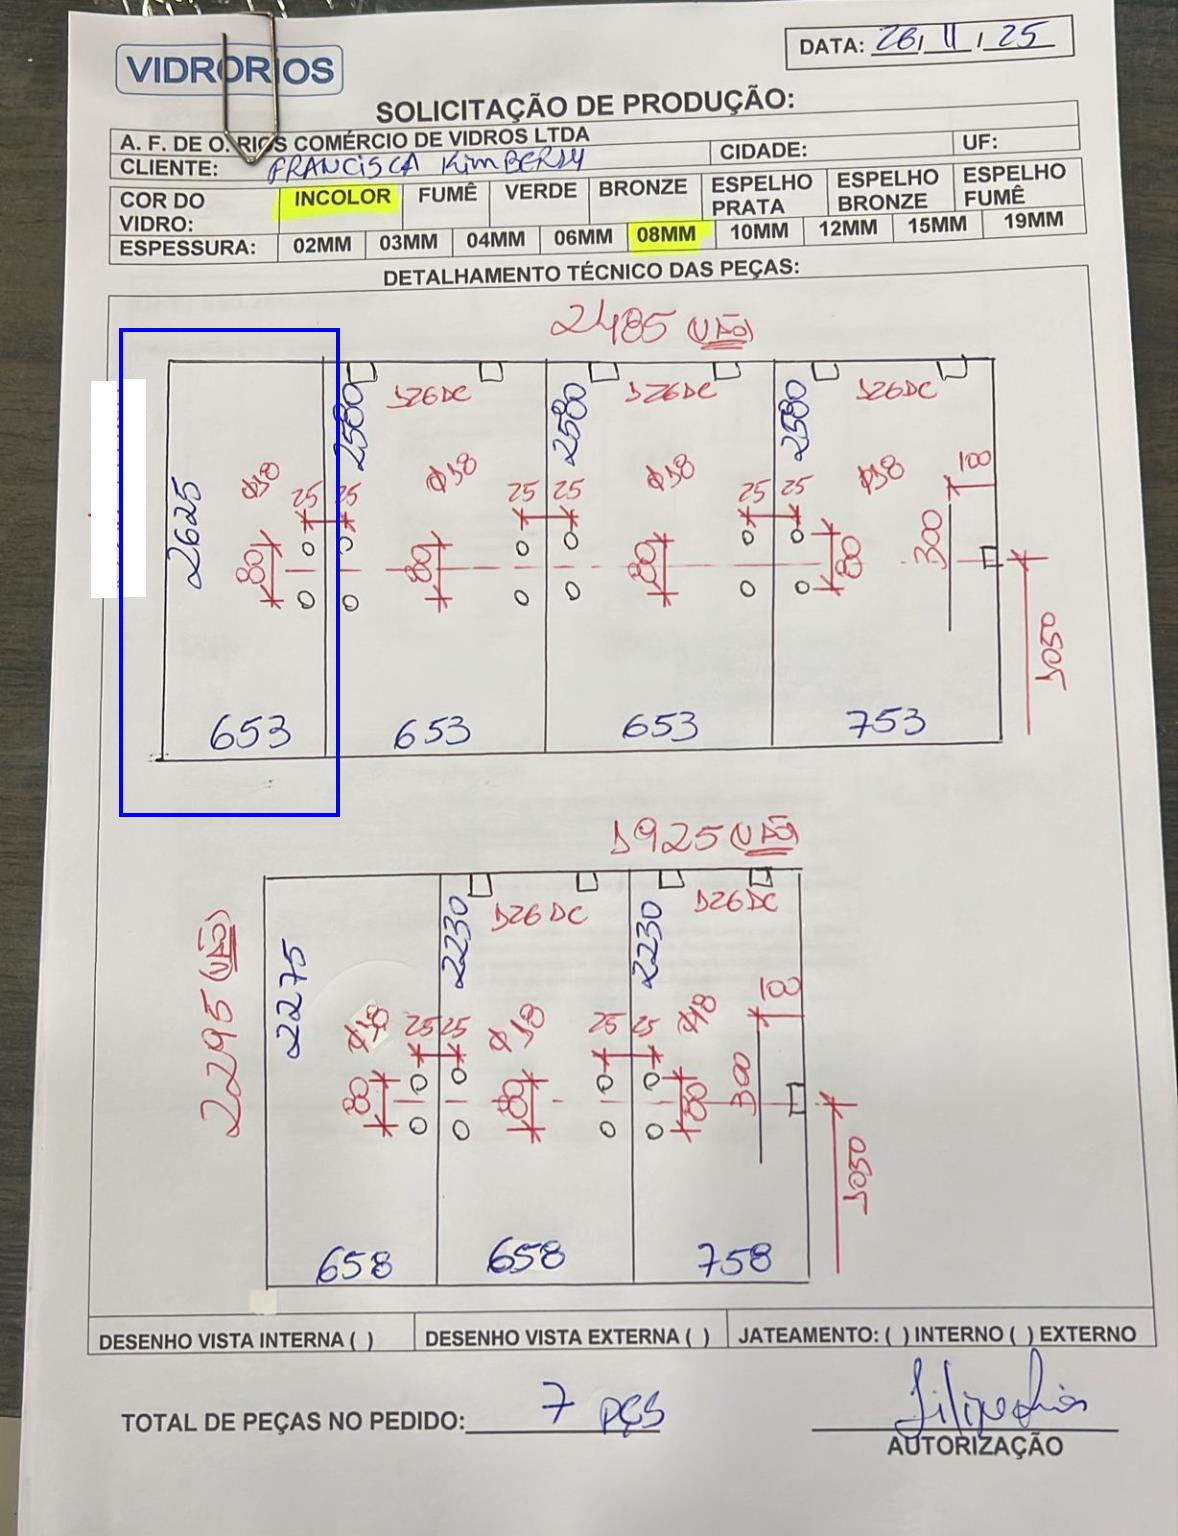 VIDRORIOS
DATA: 26/11/25
SOLICITAÇÃO DE PRODUÇÃO:
A. F. DE O. RIOS COMÉRCIO DE VIDROS LTDA
CLIENTE: FRANCISCA KimBERLY CIDADE: UF:
COR DO VIDRO: INCOLOR FUMÊ VERDE BRONZE ESPELHO PRATA ESPELHO BRONZE ESPELHO FUMÊ
ESPESSURA: 02MM 03MM 04MM 06MM 08MM 10MM 12MM 15MM 19MM
DETALHAMENTO TÉCNICO DAS PEÇAS:
2485 (VÃO)
2625 2580 2580 2580
126DC 126DC 126DC
Ø18 Ø18 Ø18 Ø18
25 25 25 25 25 25 100
80 80 80 80 300
1050
653 653 653 753
1925 (VÃO)
2295 (VÃO)
2275 2230 2230
126DC 126DC
Ø18 Ø18 Ø18
25 25 25 25 100
80 80 80 300
1050
658 658 758
DESENHO VISTA INTERNA ( ) DESENHO VISTA EXTERNA ( ) JATEAMENTO: ( ) INTERNO ( ) EXTERNO
TOTAL DE PEÇAS NO PEDIDO: 7 PÇS
AUTORIZAÇÃO